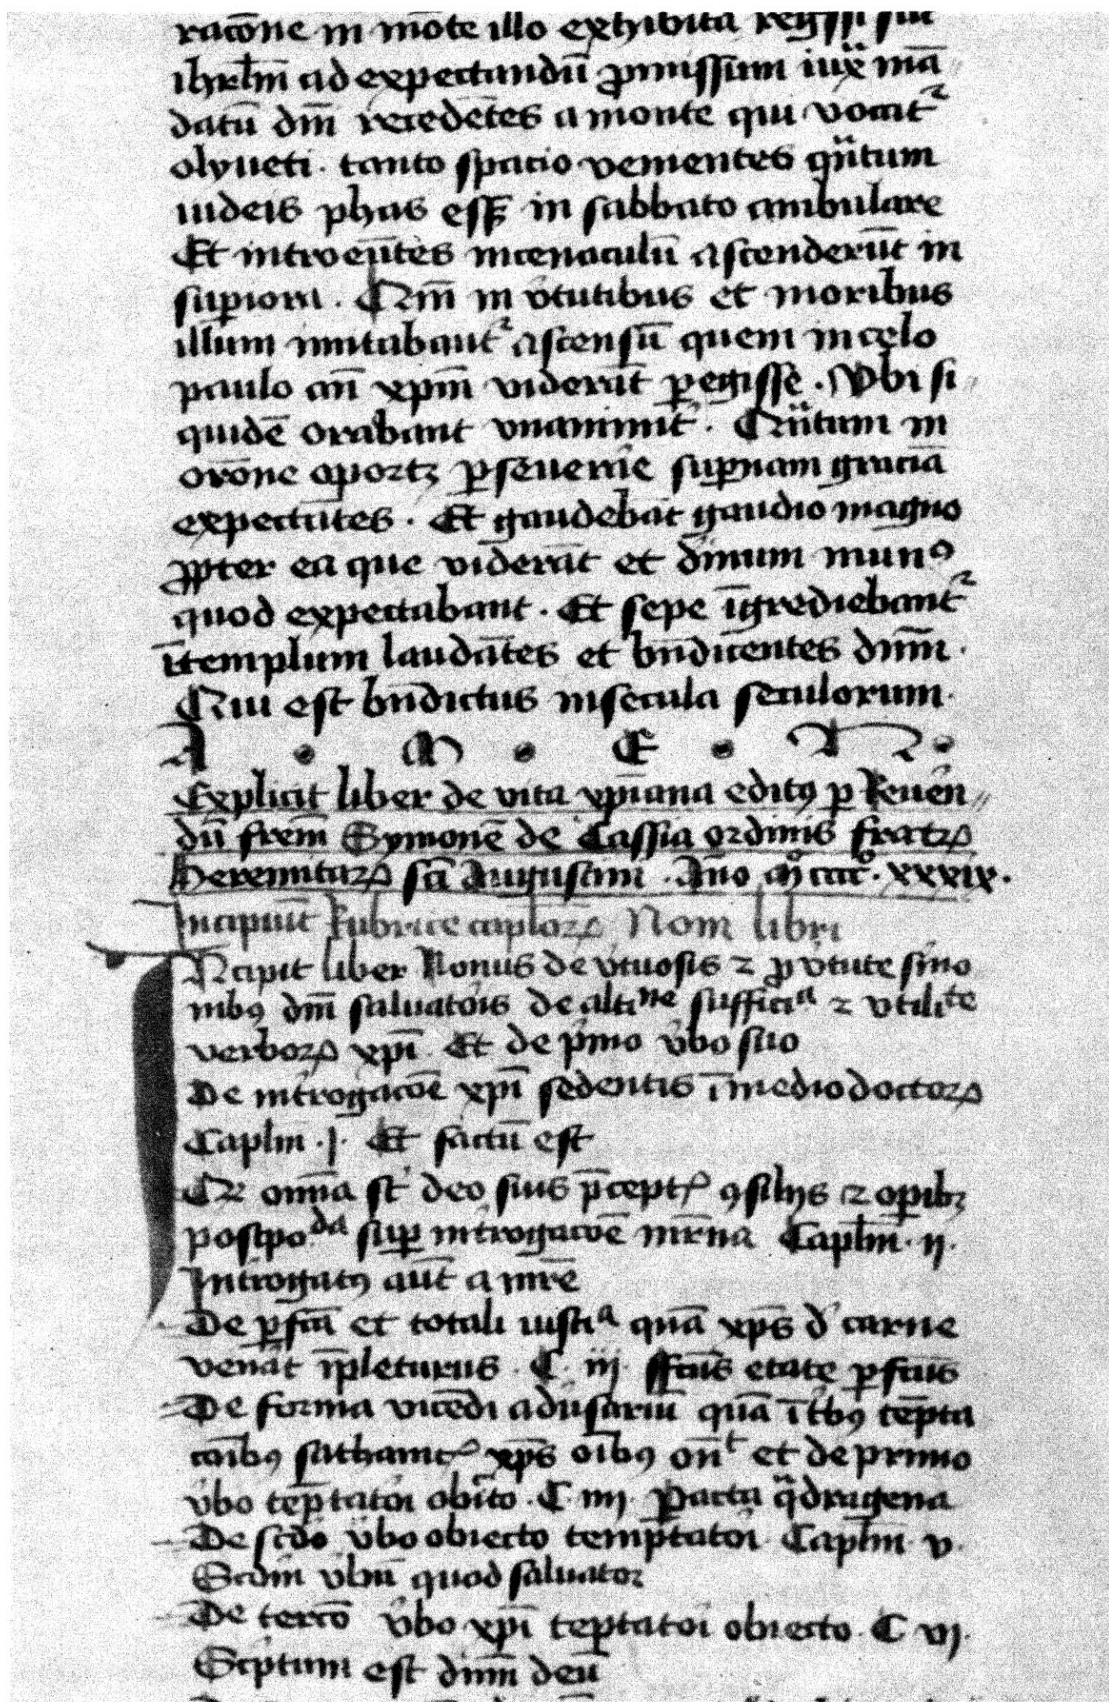 racōne in mōte illo exhibita reg̃ssi sūt
ihrl̄m ad expectandū ꝓmissum iux̄ mā〃
datū dn̄i recedētes a monte qui vocat᷑
olyueti · tanto spacio venientes qn̄tum
iudeis phas ess̄ in sabbato ambulare
Et introeūtes incenaculū ascenderūt in
sup̱iora . Qm̄ in v̓tutibus et moribus
illum imitabant᷑ ascensū quem in celo
paulo an̄ xp̄m viderāt ꝑegisse . Vbi si〃
quidē orabant vnanimit̓ . Qn̄tum in
orōne oportꝫ ꝑseuerāe sup̱nam graciā
expectātes . Et gaudebāt gaudio magno
ꝓpter ea que viderāt et diuinum munꝰ
quod expectabant . Et sepe īgrediebant᷑
ītemplum laudātes et bn̄dicentes dn̄m .
Qui est bn̄dictus insecula seculorum .
A . M . E . N .
Explicit liber de vita xp̄iana editꝰ ꝑ Reuēn〃
dū frēm Symonē de Cassia ordinis fratꝝ
Heremitaꝝ sc̄i Augustini . Āno mͦcccͦ . xxxix .
Incipiūt Rubrice capl̄oꝝ Noni libri
INcipit liber Nonus de v̓tuosis ⁊ ꝓ v̓tute sīno
nibꝰ dn̄i saluatōis de altiⁿᵉ sufficiᵃ ⁊ vtiliᵗᵉ
verboꝝ xp̄i Et de p̓mo v̓bo suo
De int̓rogacōe xp̄i sedentis ī medio doctoꝝ
Capl̄m · j · Et factū est
Q omn̄ia st̄ deo suis p̄cept᷑ ꝯsilijs ⁊ oꝑibꝫ
postpoᵈᵃ suꝑ int̓rogacōe mr̄na Capl̄m · ij ·
Int̓rogatꝰ aūt a mr̄e
De ꝑfc̄a et totali iustiᵃ quā xp̄s ī carne
ven̓at īpleturus · C · iij · ffc̄us etate ꝑfc̄us
De forma vīcēdi adūsariū quā ī t̓bꝰ tēpta
cōibꝰ sathanic᷑ xp̄s oībꝰ on̄ᵗ et de primo
v̓bo tēptatōi obīto · C · iiij · Pacta q̄dragena
De sc̄do v̓bo obiecto temptatōi Capl̄m · v ·
Scd̄m vbū quod saluator
De tercō v̓bo xp̄i tēptatōi obiecto · C vj ·
Sc̓ptum est dn̄m deū